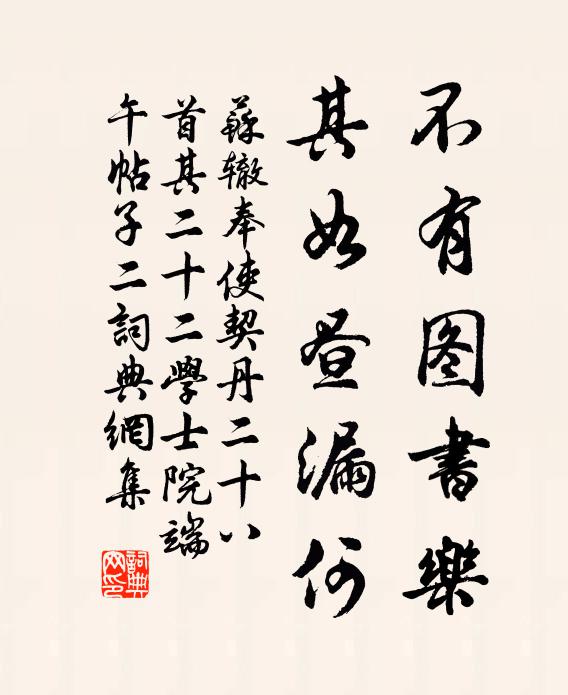 不有图書樂
其如昼漏何
蘇辙奉使契丹二十八
首其二十二學士院端
午帖子二詞典網集
詞典网印